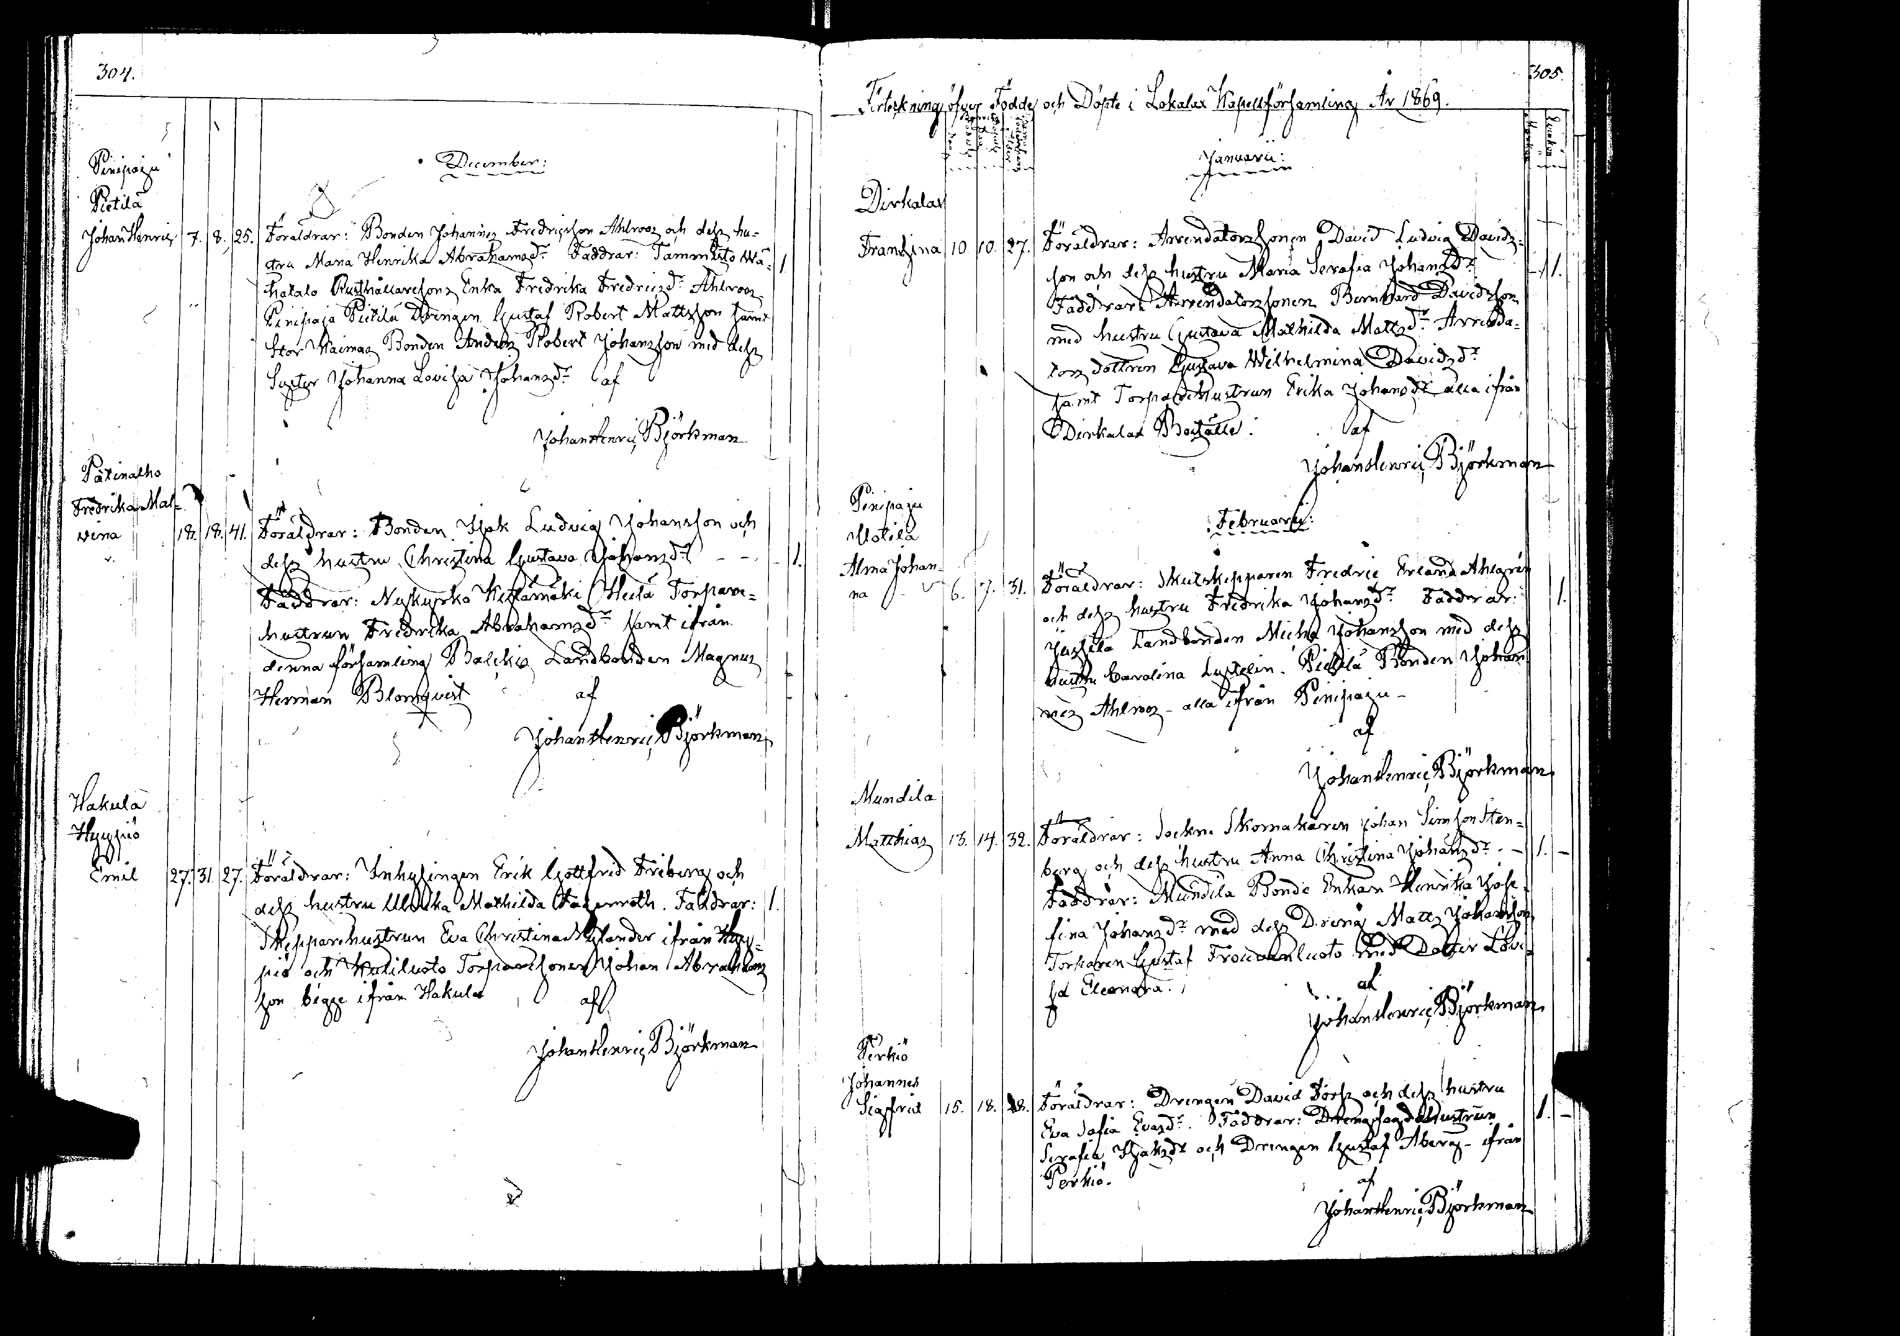 304.
December:
Pinipaju
Pietilä
Johan Henric 7. 8. 25. Föräldrar: Bonden Johannes Fredricsson Ahlroos och dess hu-
stru Maria Henrika Abrahamsdr. Faddrar: Tammisto Wä-
hätalo Rusthållaresons Enka Fredrika Fredricsdr Ahlroos 1.
Pinipaju Pietilä Drengen Gustaf Robert Mattsson samt
Stor Waimas Bonden Anders Robert Johansson med dess
Syster Johanna Lovisa Johansdr. af
Johan Henric Björkman
Pätinalho
Fredrika Mal-
vina 18. 18. 41. Föräldrar: Bonden Isak Ludvig Johansson och
dess hustru Christina Gustava Johansdr. 1.
Faddrar: Nykyrko Torpare-
hustrun Fredrika Abrahamsdr samt ifrån
denna församling Landbonden Magnus
Herman Blomqvist af
Johan Henric Björkman
Hakula
Hyyppiö
Emil 27. 31. 27. Föräldrar: Inhysingen Erik Gottfrid Friberg och
dess hustru Ulrika Mathilda Fagerroth. Faddrar: 1.
Skepparehustrun Eva Christina Nylander ifrån Hyy-
piö och Torparesonen Johan Abrahams
son begge ifrån Hakula af
Johan Henric Björkman
305.
Förteckning öfver Födde och Döpte i Lokalax Kapellförsamling År 1869.
Januarii:
Dirkalax
Fransina 10 10. 27. Föräldrar: Arrendatorssonen David Ludvig Davids-
son och dess hustru Maria Serafia Johansdr. 1.
Faddrar: Arrendatorssonen Bernhard Davidsson
med hustru Gustava Mathilda Mattsdr. Arrenda-
tors dottren Gustava Wilhelmina Davidsdr
samt Torparehustrun Erika Johansdr alla ifrån
Dirkalax Boställe. af
Johan Henric Björkman
Februarii:
Pinipaju
Uotila
Alma Johan-
na 6. 7. 31. Föräldrar: Skutskepparen Fredric Erland Ahlgrén
och dess hustru Fredrika Johansdr. Faddrar: 1.
Jussila Landbonden Micha Johansson med dess
hustru Carolina Pietilä Bonden Johan-
nes Ahlroos - alla ifrån Pinipaju -
af
Johan Henric Björkman
Mundila
Matthias 13. 14. 32. Föräldrar: Sockne Skomakaren Johan Simson Sten-
berg och dess hustru Anna Christina Johansdr. - 1. -
Faddrar: Mundila Bonde Enkan Henrika Jose-
fina Johansdr med dess Dreng Matts Johansson
Torparen Gustaf med Dotter Lovi-
sa Eleonora. af
Johan Henric Björkman
Perkiö
Johannes
Sigfrid 15. 18. 28. Föräldrar: Drengen David Fors och dess hustru
Eva Sofia Evasdr. Faddrar: Drengfogdehustrun 1. -
Serafia Isaksdr och Drengen Gustaf Åberg - ifrån
Perkiö. af
Johan Henric Björkman